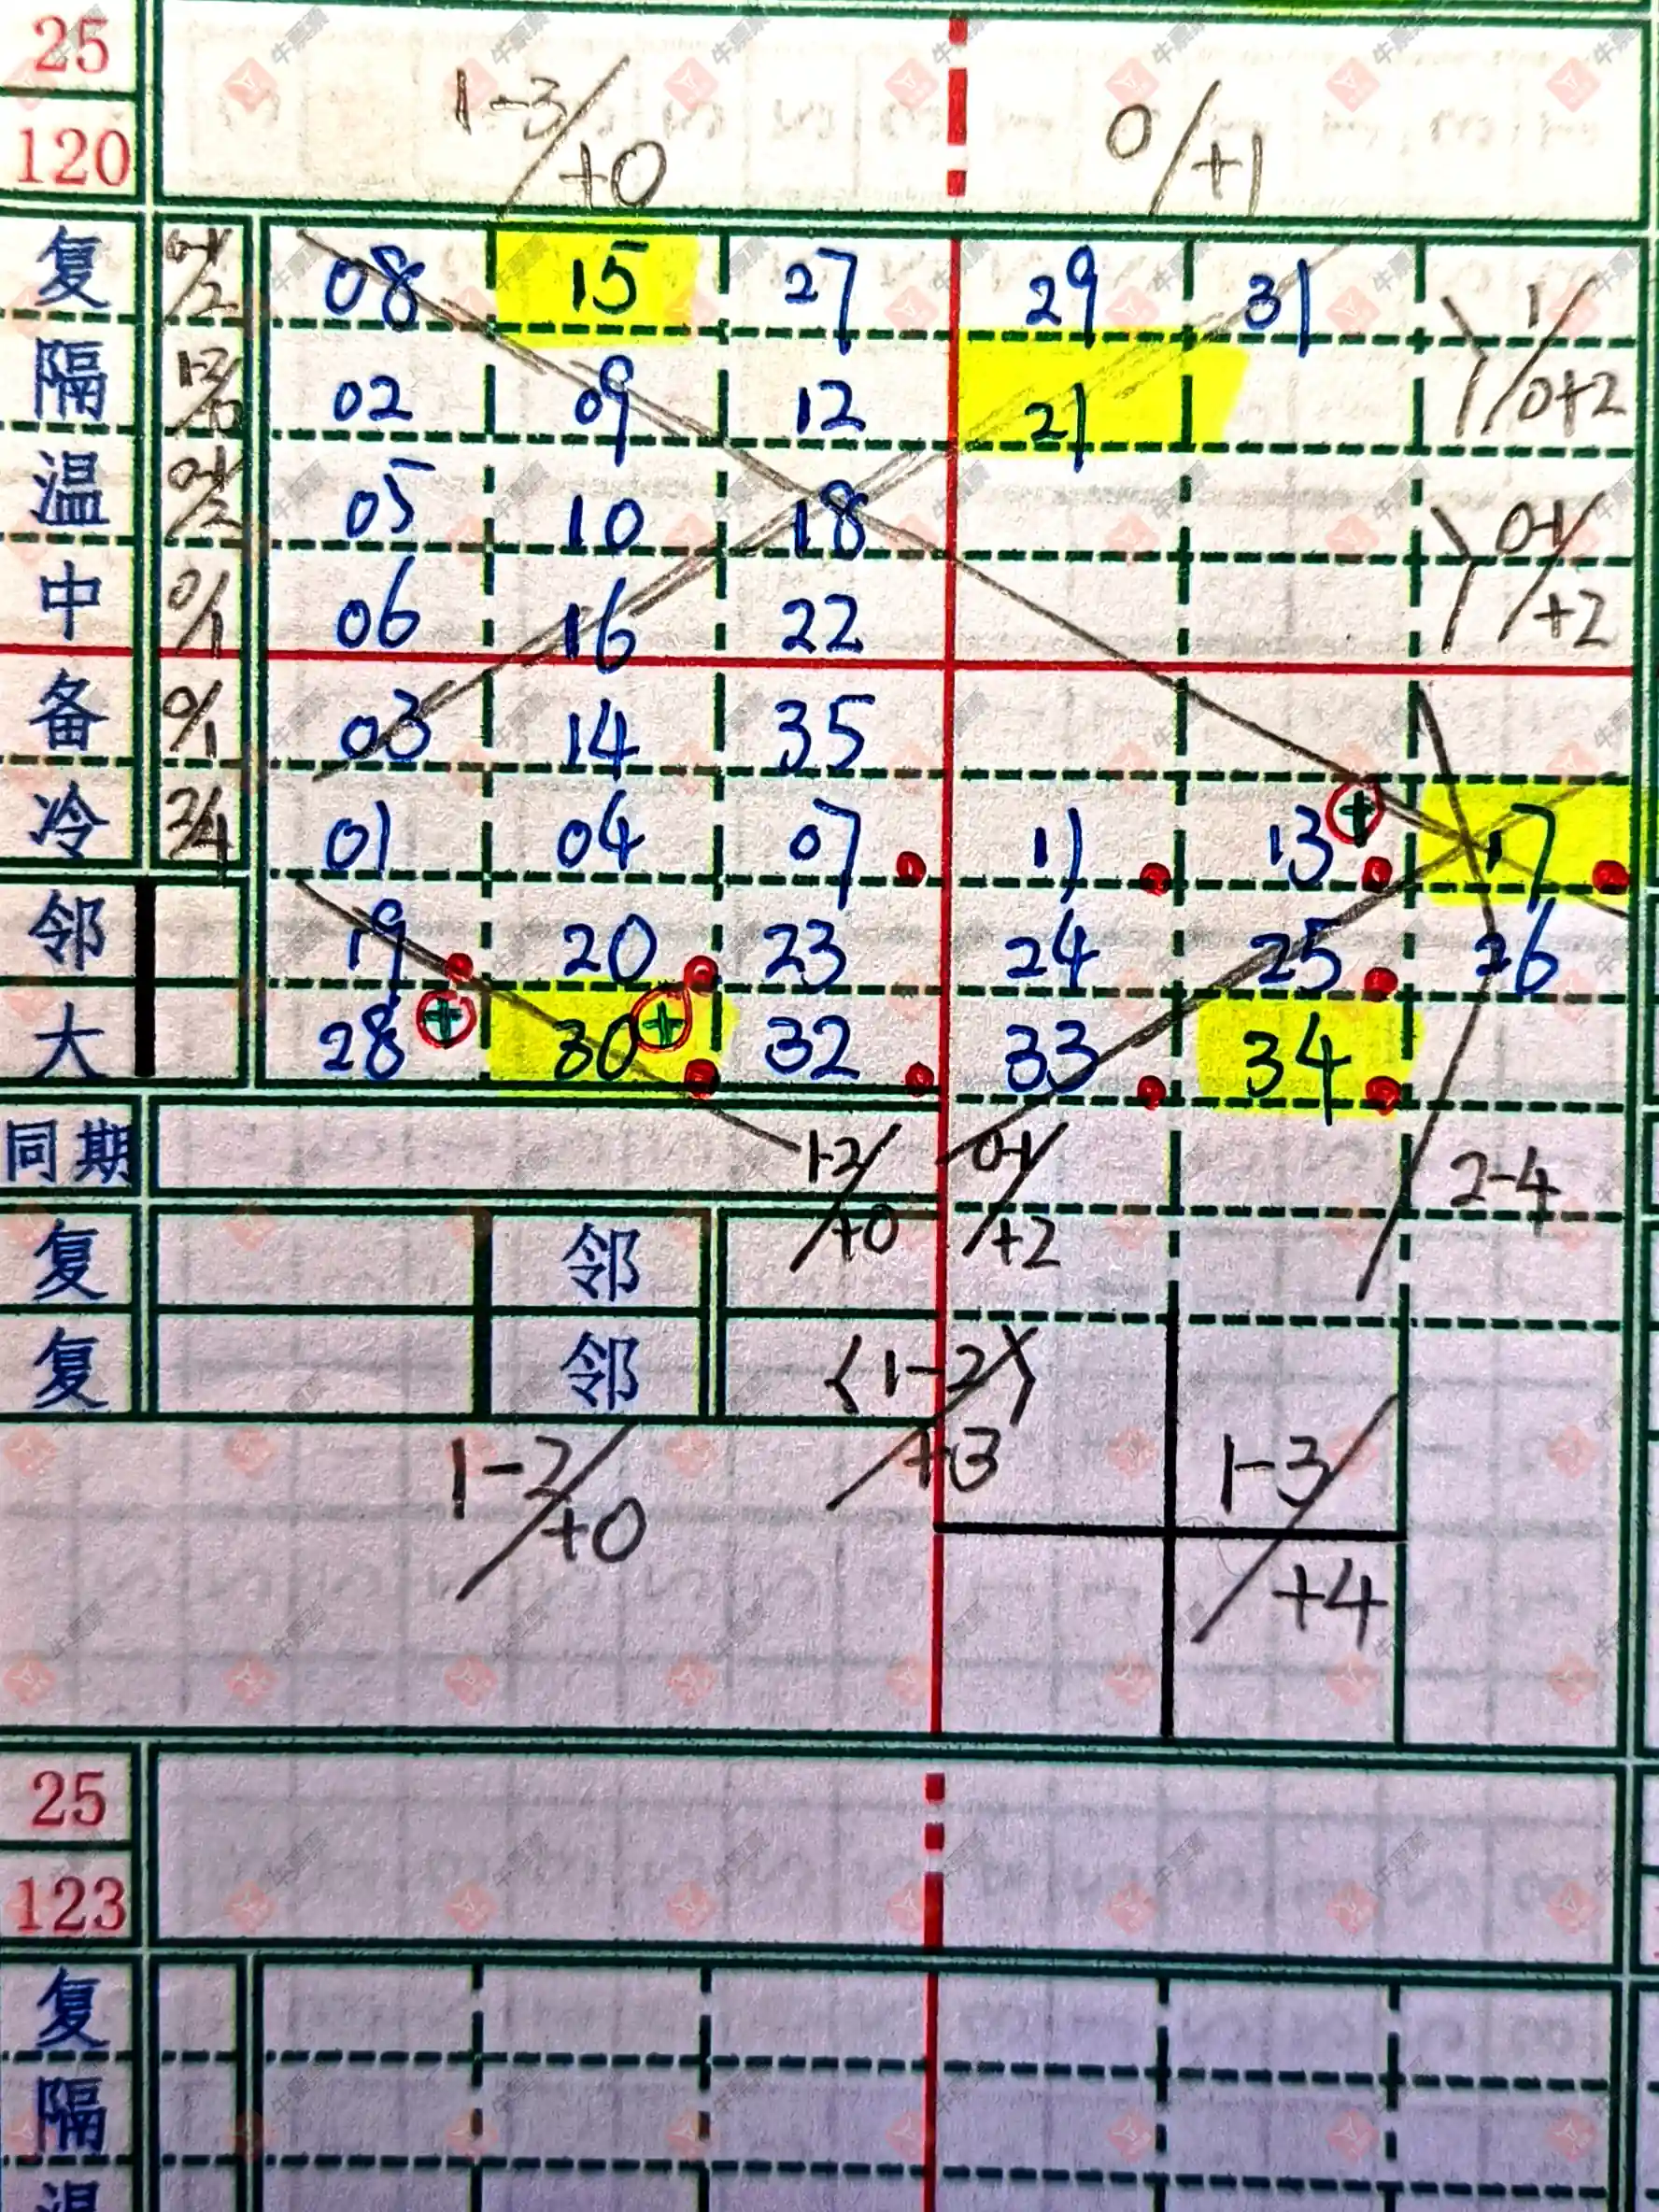 25 1-3/+0 0/+1
120
复 0-1/2 08 15 27 29 31 1/0+2
隔 02 09 12 21
温 0-1/2 05 10 18 0-1/+2
中 0/1 06 16 22
备 0/1 03 14 35
冷 3/4 01 04 07 11 13 17
邻 19 20 23 24 25 26
大 28 30 32 33 34
同期 1-2/+0 0-1/+2 2-4
复 邻
复 邻 〈1-2〉/+3
1-2/+0 1-3/+4
25
123
复
隔
温